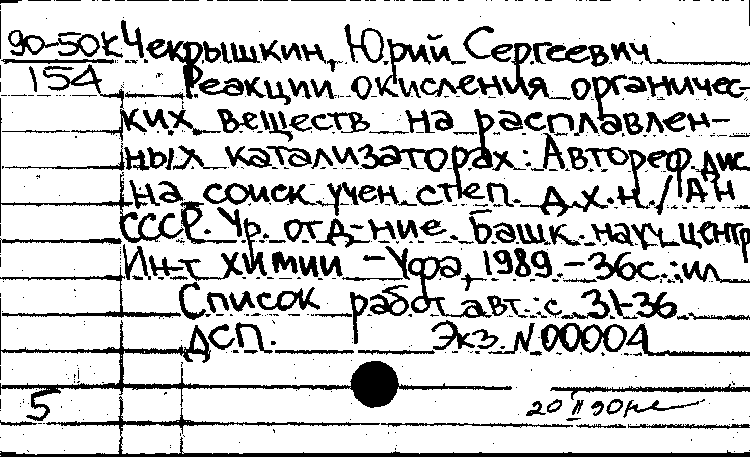 90-50к Чекрышкин, Юрий Сергеевич
154 Реакции окисления органичес-
ких веществ на расплавлен-
ных катализаторах: Автореф дис
на соиск учен. степ. д.х.н. / АН
СССР. Ур. отд-ние. Башк. науч центр
Ин-т химии - Уфа, 1989. - 36с.: ил
Список работ авт.: с 31-36
ДСП. Экз. N 00004
5 20 II 90